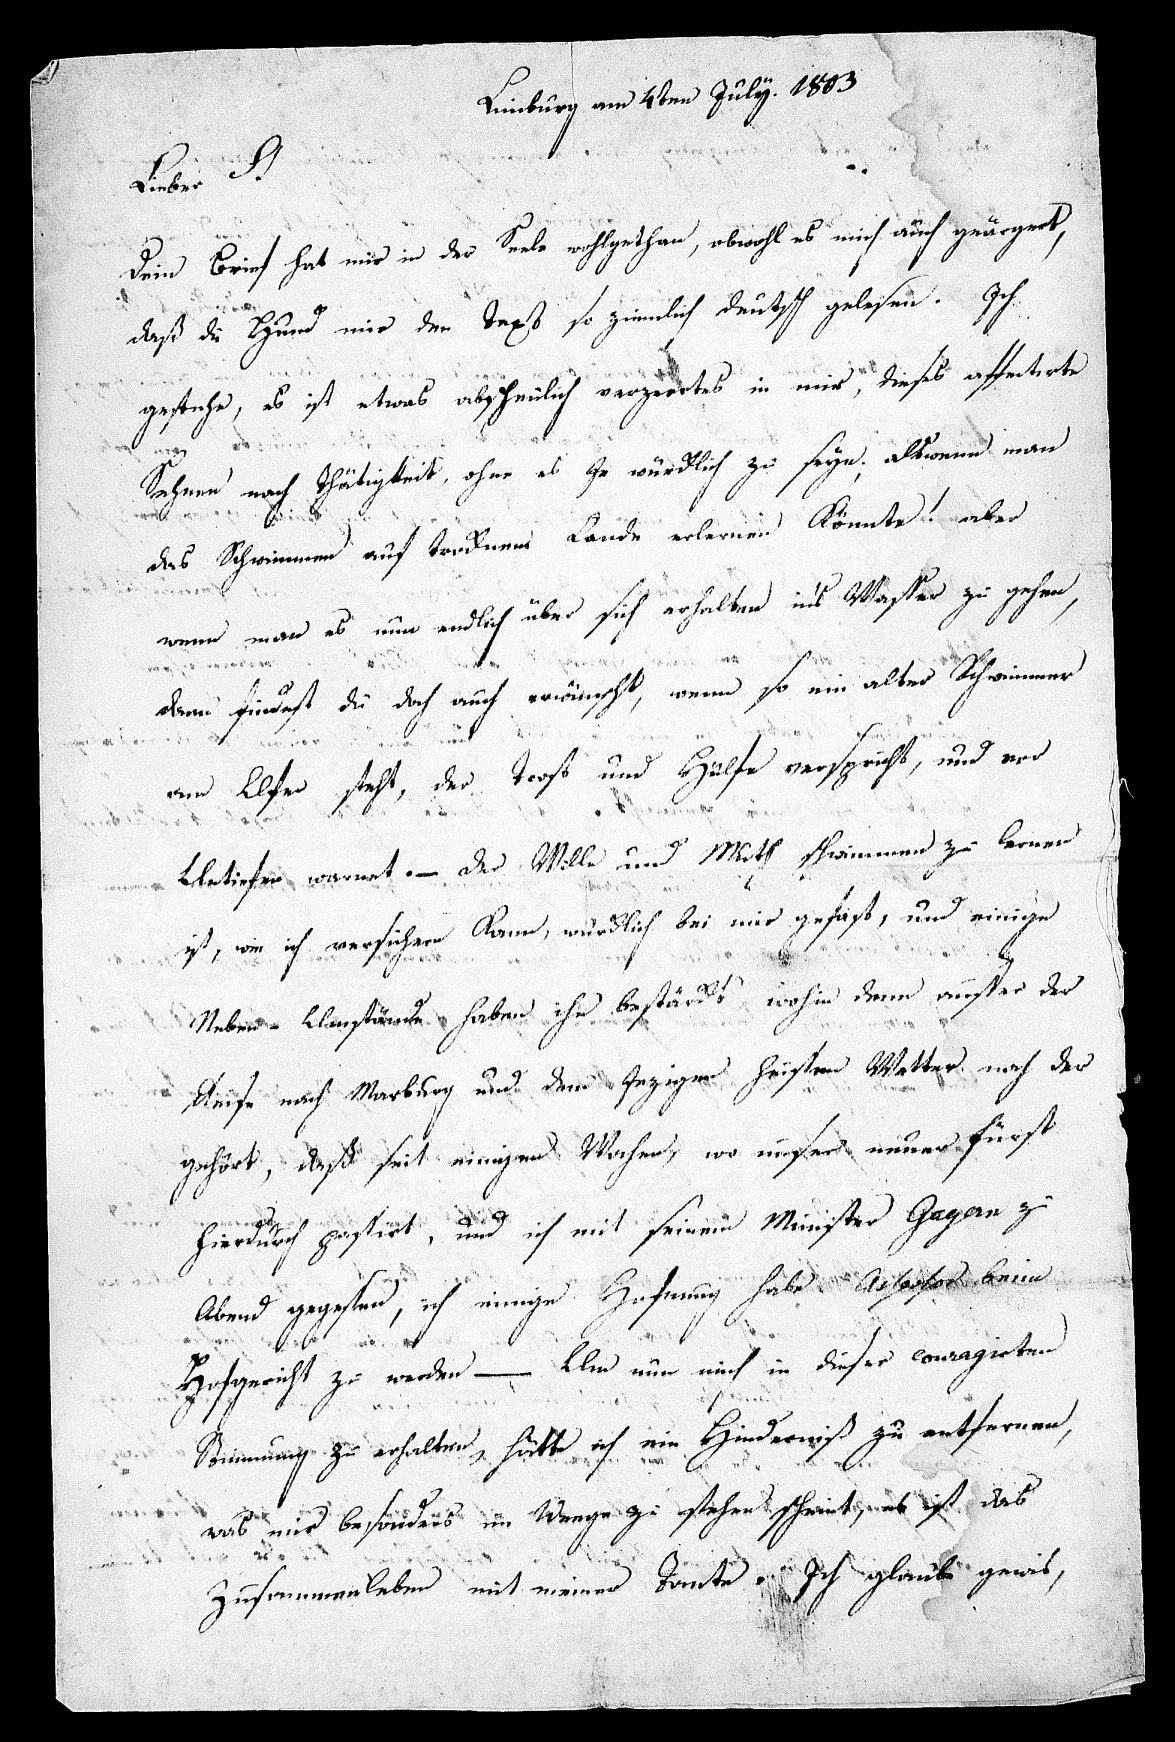 Limburg am 4ten July. 1803
Lieber S!
Dein Brief hat mir in der Seele wohlgethan, obwohl es mich auch geärgert,
daß du Hund mir den Text so ziemlich deutsch gelesen. Ich
gestehe, es ist etwas abscheulich verzerrtes in mir, dieses affectirte
Sehnen nach Thätigkeit, ohne es je würcklich zu seyn, als wenn man
das Schwimmen auf trocknem Lande erlernen könnte! aber
wenn man es nun endlich über sich erhalten in's Wasser zu gehen,
dann findest du doch auch erwünscht, wenn so ein alter Schwimmer
am Ufer steht, der Trost und Hülfe verspricht, und vor
Untiefen warnet. — der Wille und Muth schwimmen zu lernen
ist, wie ich versichern kann, würcklich bei mir gefaßt, und einige
Neben-Umstände haben ihn bestärckt, wohin denn ausser der
Reise nach Marburg und dem jezigen heissen Wetter noch der
gehört, daß seit einigen Wochen, wo unser neuer Fürst
hierdurch passirt, und ich mit seinem Minister Gagern zu
Abend gegessen, ich einige Hofnung habe Assessor beim
Hofgericht zu werden — Um nun mich in dieser couragirten
Stimmung zu erhalten, hätte ich ein Hinderniß zu entfernen,
was mir besonders im Weege zu stehen scheint, es ist das
Zusammenleben mit meiner Tante. Ich glaube gewis,